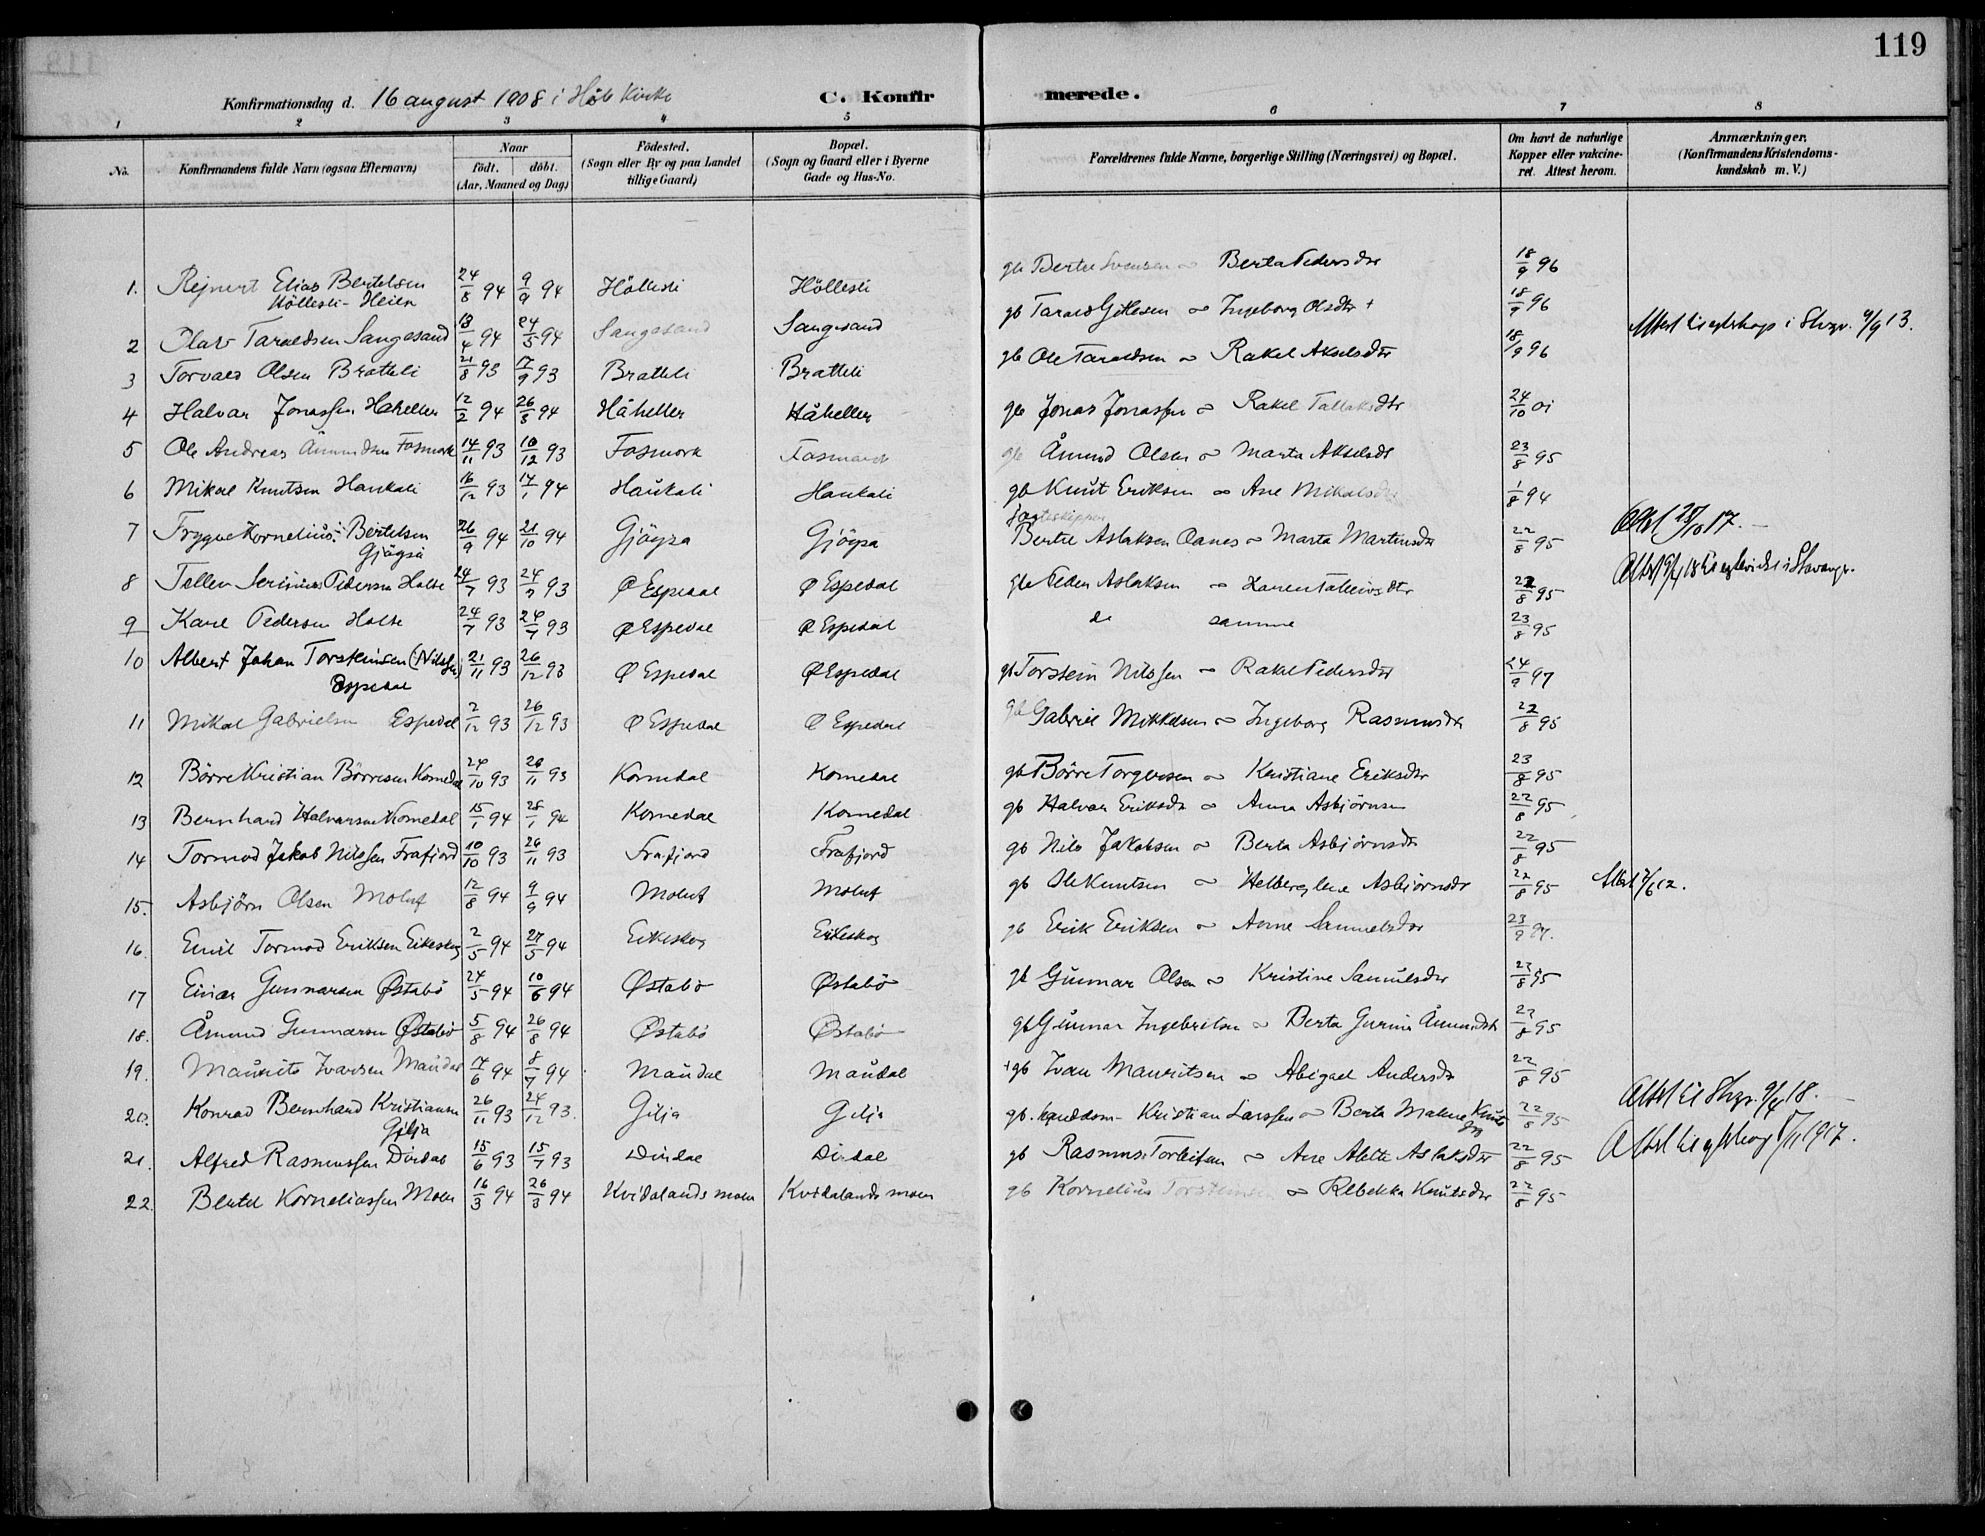 119
Konfirmationsdag d. 16 august 1908 i Høle Kirke C. Konfirmerede.
1 2 3 4 5 6 7 8
No. Konfirmandens fulde Navn (ogsaa Efternavn) Naar födt. döbt. (Aar, Maaned og Dag) Födested. (Sogn eller By og paa Landet tillige Gaard) Bopæl. (Sogn og Gaard eller i Byerne Gade og Hus-No. Forældrenes fulde Navne, borgerlige Stilling (Næringsvei) og Bopæl. Om havt de naturlige Kopper eller vakcineret. Attest herom. Anmærkninger. (Konfirmandens Kristendomskundskab m. V.)
1. Rejnert Elias Bertelsen 24/8 94 9/9 94 Höllesli Höllesli gb Bertel Svensen ∾ Berta Pedersdtr 18/9 96
Höllesli - Heien
2 Olav Taraldsen Sangesand 13/4 94 24/5 94 Sangesand Sangesand gb Tarald Gitlesen ∾ Ingeborg Olsdtr + 18/9 96 9/9 13.
3 Torvald Olsen Bratteli 21/8 93 17/9 93 Bratteli Bratteli gb Ole Taraldsen ∾ Rakel Akselsdtr 18/9 96
4 Halvar Jonassen Håheller 12/2 94 26/3 94 Håheller Håheller gb Jonas Jonassen ∾ Rakel Tallaksdtr 24/10 01
5 Ole Andreas Åmundsen Fosmork 14/11 93 10/12 93 Fosmork Fosmark gb Åmund Olsen ∾ Marta Akselsdt 23/8 95
6 Mikal Knutsen Haukali 16/12 93 14/1 94 Haukali Haukali gb Knut Eriksen ∾ Ane Mikalsdtr 1/8 94
7 Trygve Kornelius Bertelsen 26/9 94 21/10 94 Gjöysa Gjöysa Bertel Aslaksen Oanes ∾ Marta Martinsdtr 22/8 95 17.
Gjöysa
8 Tellev Serinius Pedersen Halse 24/7 93 24/7 93 Ø Espedal Ø Espedal gb Peder Aslaksen ∾ Karen Tallevsdtr 22/8 95
9 Karl Pedersen Halse 24/7 93 24/7 93 Ø Espedal Ø Espedal de samme 23/8 95
10 Albert Johan Torsteinsen (Nilssen) 21/11 93 26/12 93 Ø Espedal Ø Espedal gb Torstein Nilssen ∾ Rakel Pedersdtr 24/9 97
Espedal
11 Mikal Gabrielsen Espedal 2/12 93 26/12 93 Ø Espedal Ø Espedal gb Gabriel Mikkelsen ∾ Ingeborg Rasmusdtr 22/8 95
12 Börre Kristian Börresen Kommedal 24/10 93 26/11 93 Komedal Komedal gb Börre Torgersen ∾ Kristiane Eriksdtr 23/8 95
13 Bernhard Halvarsen Komedal 15/1 94 28/1 94 Komedal Komedal gb Halvar Eriksen ∾ Anna Asbjörnsen 22/8 95
14 Tormod Jakob Nilssen Frafjord 10/10 93 26/11 93 Frafjord Frafjord gb Nils Jakobsen ∾ Berta Asbjörnsdtr 22/8 95
15. Asbjörn Olsen Moluf 12/8 94 9/9 94 Moluf Moluf gb Ole Knutsen ∾ Helberg Lene Asbjörnsdtr 22/8 95
16. Emil Tormod Eriksen Eikeskog 2/5 94 27/5 94 Eikeskog Eikeskog gb Erik Eriksen ∾ Anne Samuelsdtr
17 Einar Gunnarsen Østabö 24/5 94 10/6 94 Østabö Østabö gb Gunnar Olsen ∾ Kristine Samuelsdtr 23/8 95
18. Åmund Gunnarsen Østabö 5/8 94 26/8 94 Østabö Østabö gb Gunnar Ingebretsen ∾ Berta Gurine Åmundsdtr 23/8 95
19. Maurits Ivarsen Maudal 17/6 94 8/7 94 Maudal Maudal + gb Ivar Mauritsen ∾ Abigael Andersdtr 22/8 95
20. Konrad Bernhard Kristiansen 26/11 93 24/12 93. Gilja Gilja gb. Kristian Larssen ∾ Berta Malene Knutsdtr 22/8 95 18.
Gilja
21. Alfred Rasmussen Dirdal 15/6 93 15/7 93 Dirdal Dirdal gb Rasmus Torleifsen ∾ Ane Alette Aslaksdtr 22/8 95 1917.
22. Bertel Korneliussen Moen 16/3 94 26/3 94 Kvidalandsmoen Kvidalandsmoen gb Kornelius Torsteinsen ∾ Rebekka Knutsdtr 22/8 95